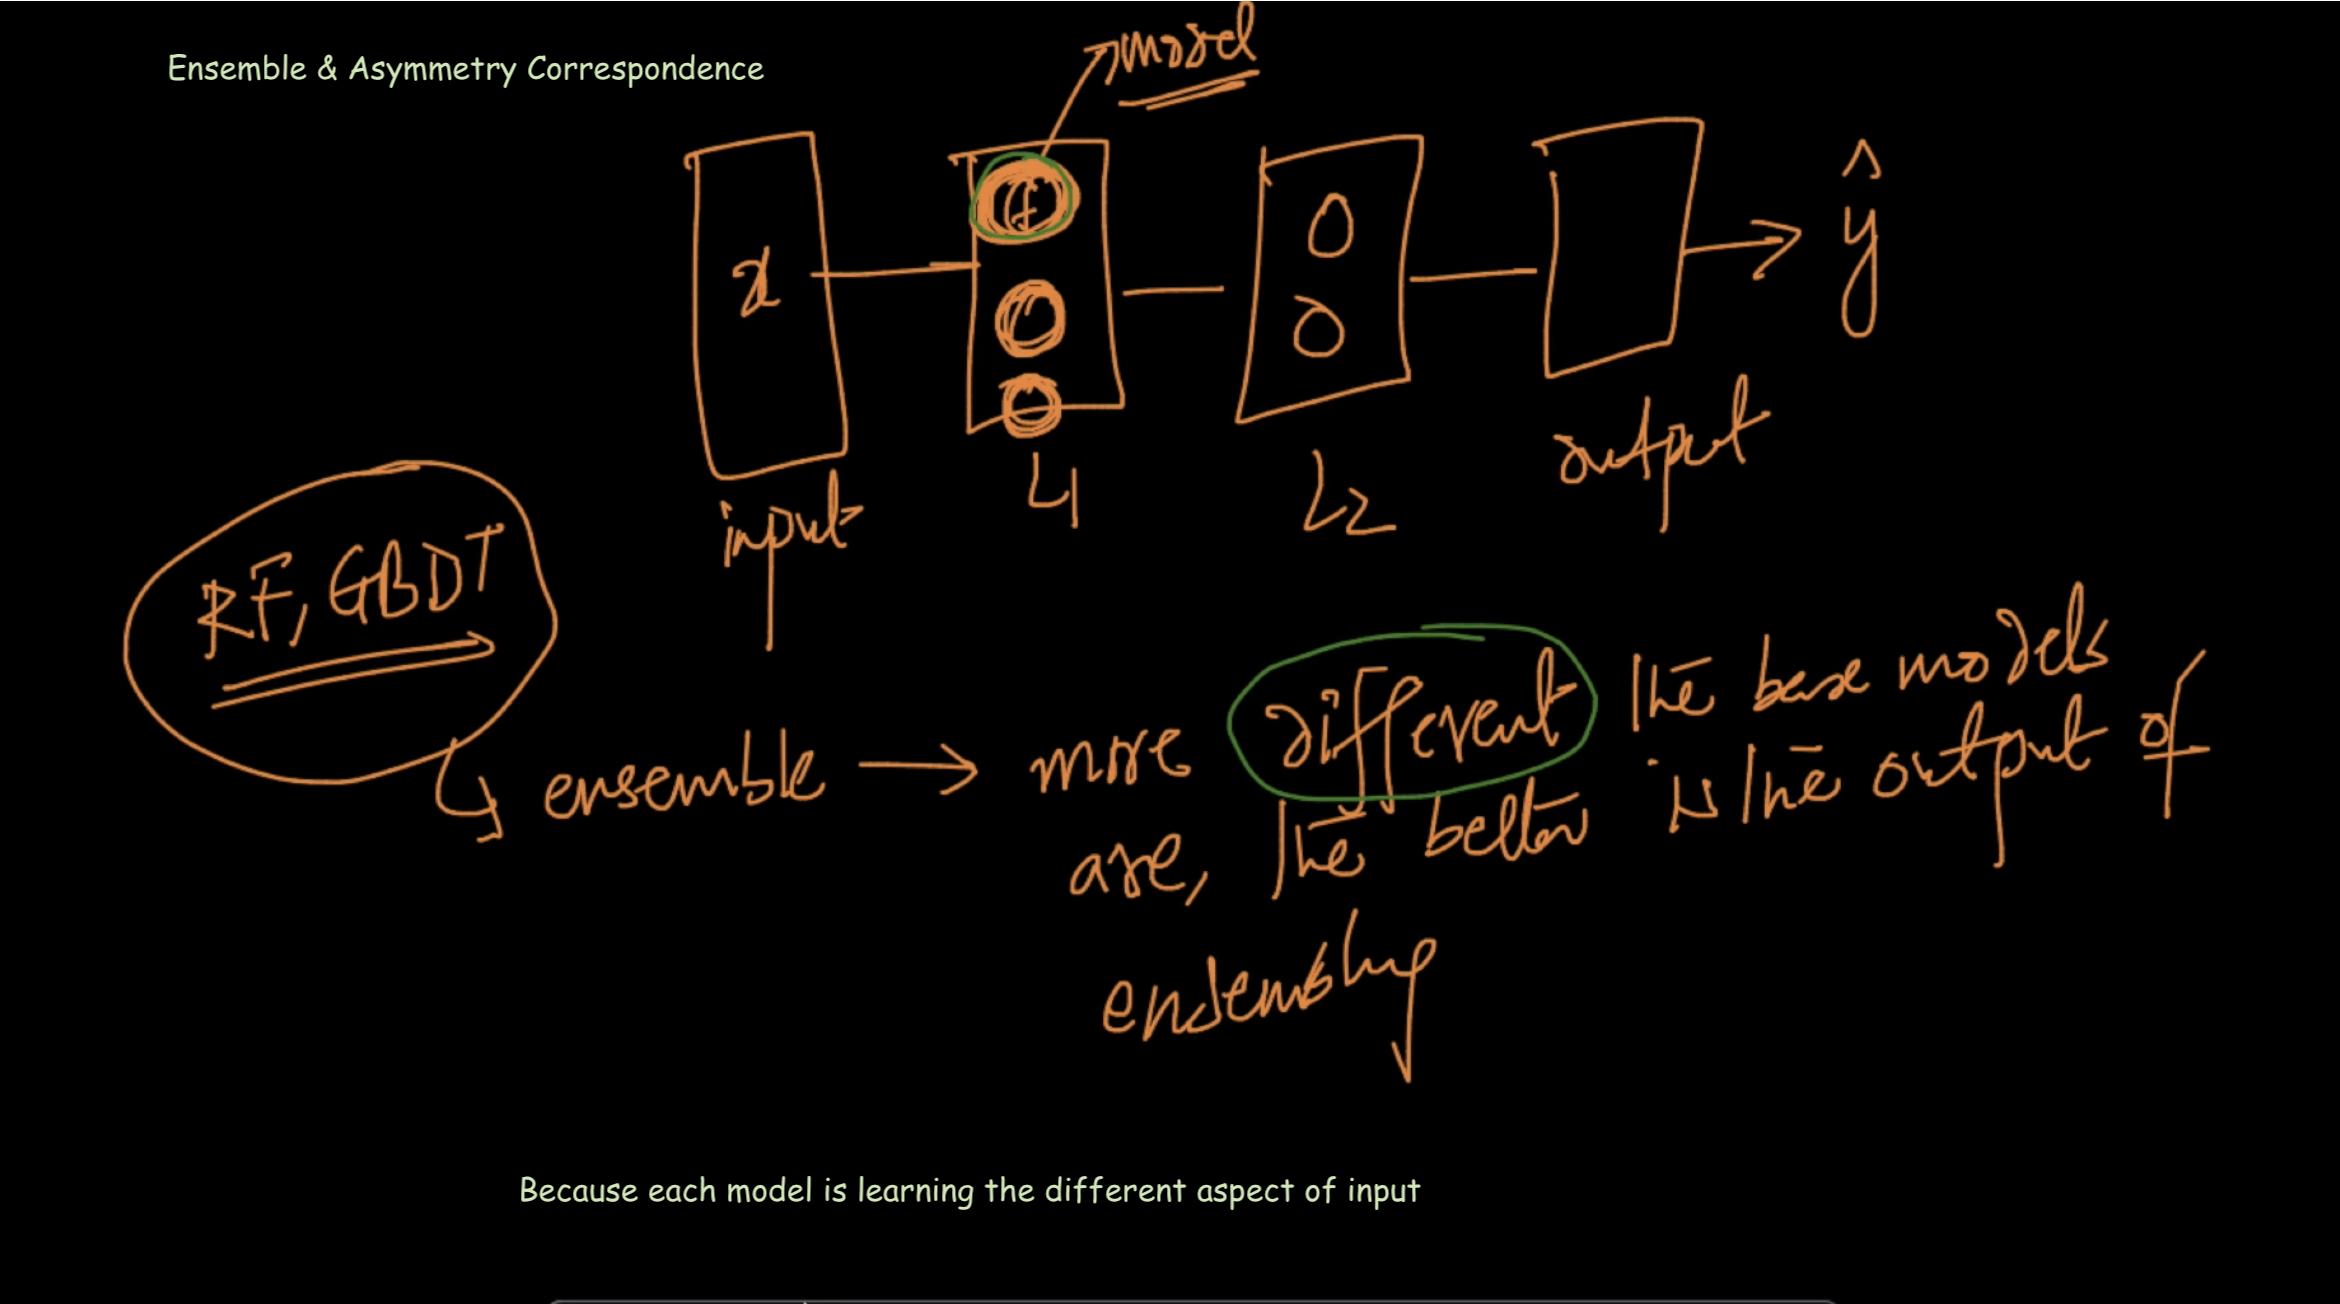 Ensemble & Asymmetry Correspondence
model
x
f
ŷ
input
L1
L2
output
RF, GBDT
ensemble → more different the base models
are, the better is the output of
ensembling
Because each model is learning the different aspect of input